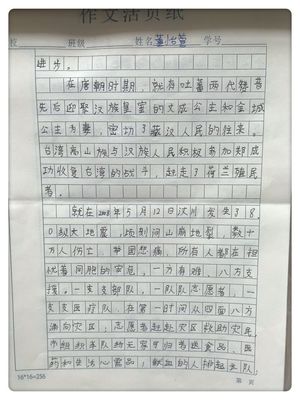 作文活页纸
校 班级 姓名董怡萱 学号
进步。
在唐朝时期，就有吐蕃两代赞普
先后迎娶汉族皇室的文成公主和金城
公主为妻，密切了藏汉人民的往来。
台湾高山族与汉族人民积极参加郑成
功收复台湾的战斗，赶走了荷兰殖民
者。
就在2008年5月12日汶川发生了8
0级大地震，顷刻间山崩地裂，数十
万人伤亡，举国悲痛，所有人都在担
忧着同胞的安危。一方有难，八方支
援。一支支部队，一队队志愿者，一
支支医疗队，在第一时间从四面八方
涌向灾区；志愿者赶赴灾区救助灾民
组织车队给无家可归者送食品、医
药和生活必需品；献血的人排起长队
16*16=256
第 页